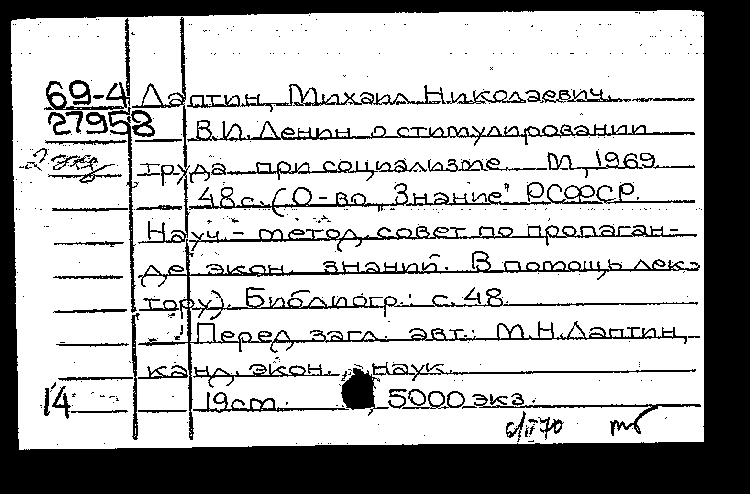 69-4 Лаптин, Михаил Николаевич.
27958 В.И. Ленин о стимулировании
2 экз труда при социализме. М., 1969.
48 с. (О-во „Знание" РСФСР.
Науч.-метод. совет по пропаган-
де экон. знаний. В помощь лек-
тору). Библиогр.: с. 48.
Перед загл. авт.: М.Н. Лаптин,
канд. экон. наук.
14 19 cm. 5000 экз.